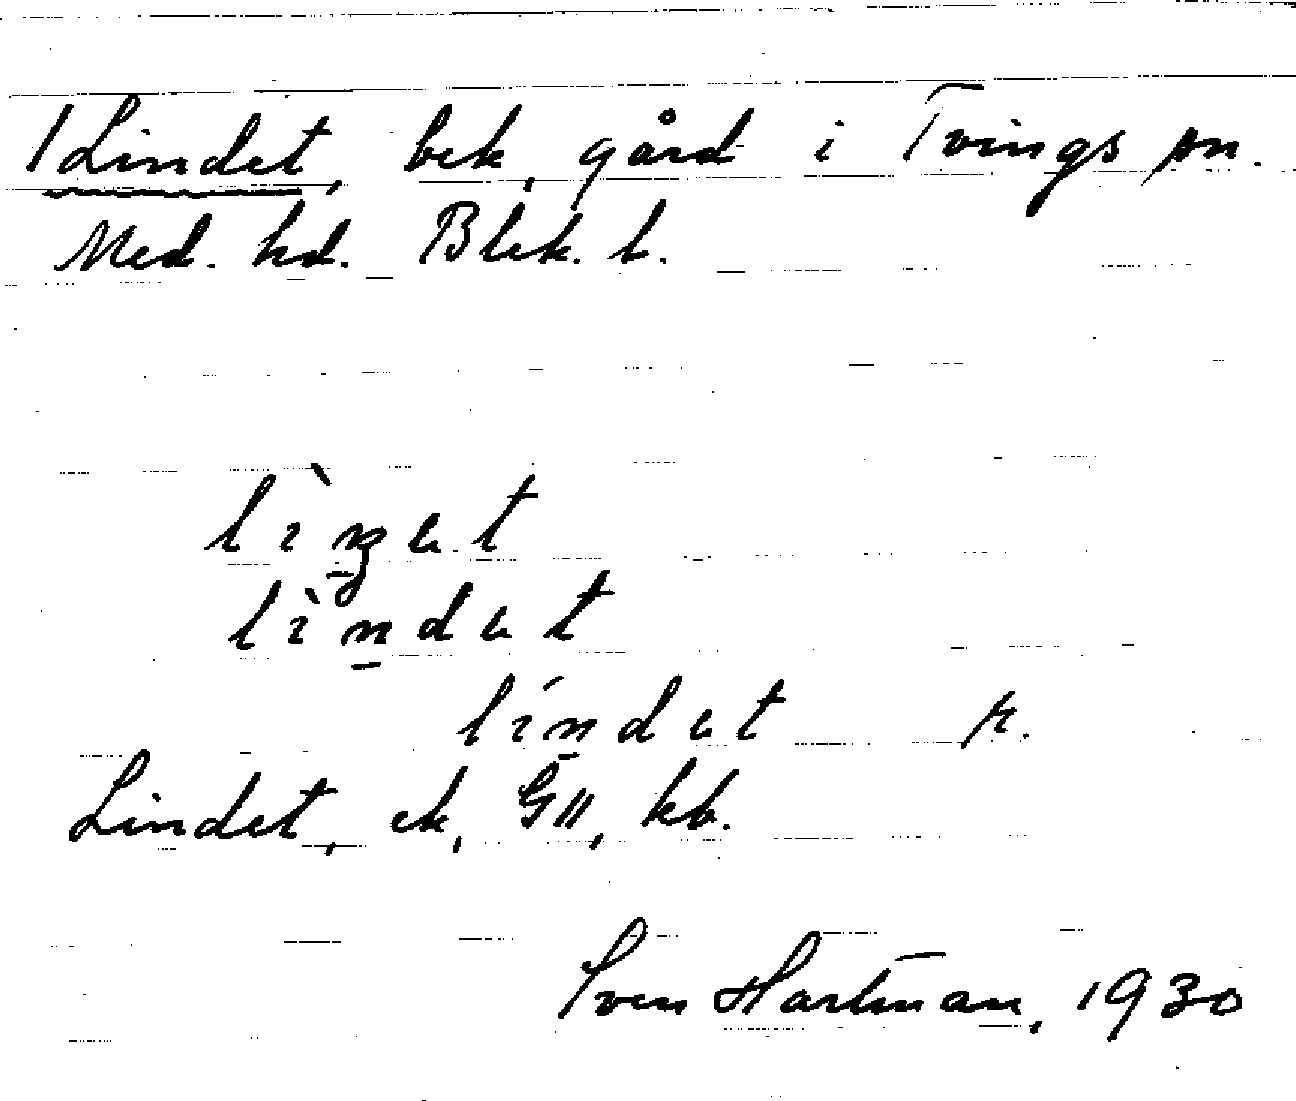 1 Lindet, bek, gård i Tvings sn.
Med. hd. Blek. l.
lìṉət
lìṉdət
líṉdət r.
Lindet, ek, GII, kb.
Sven Hartman, 1930